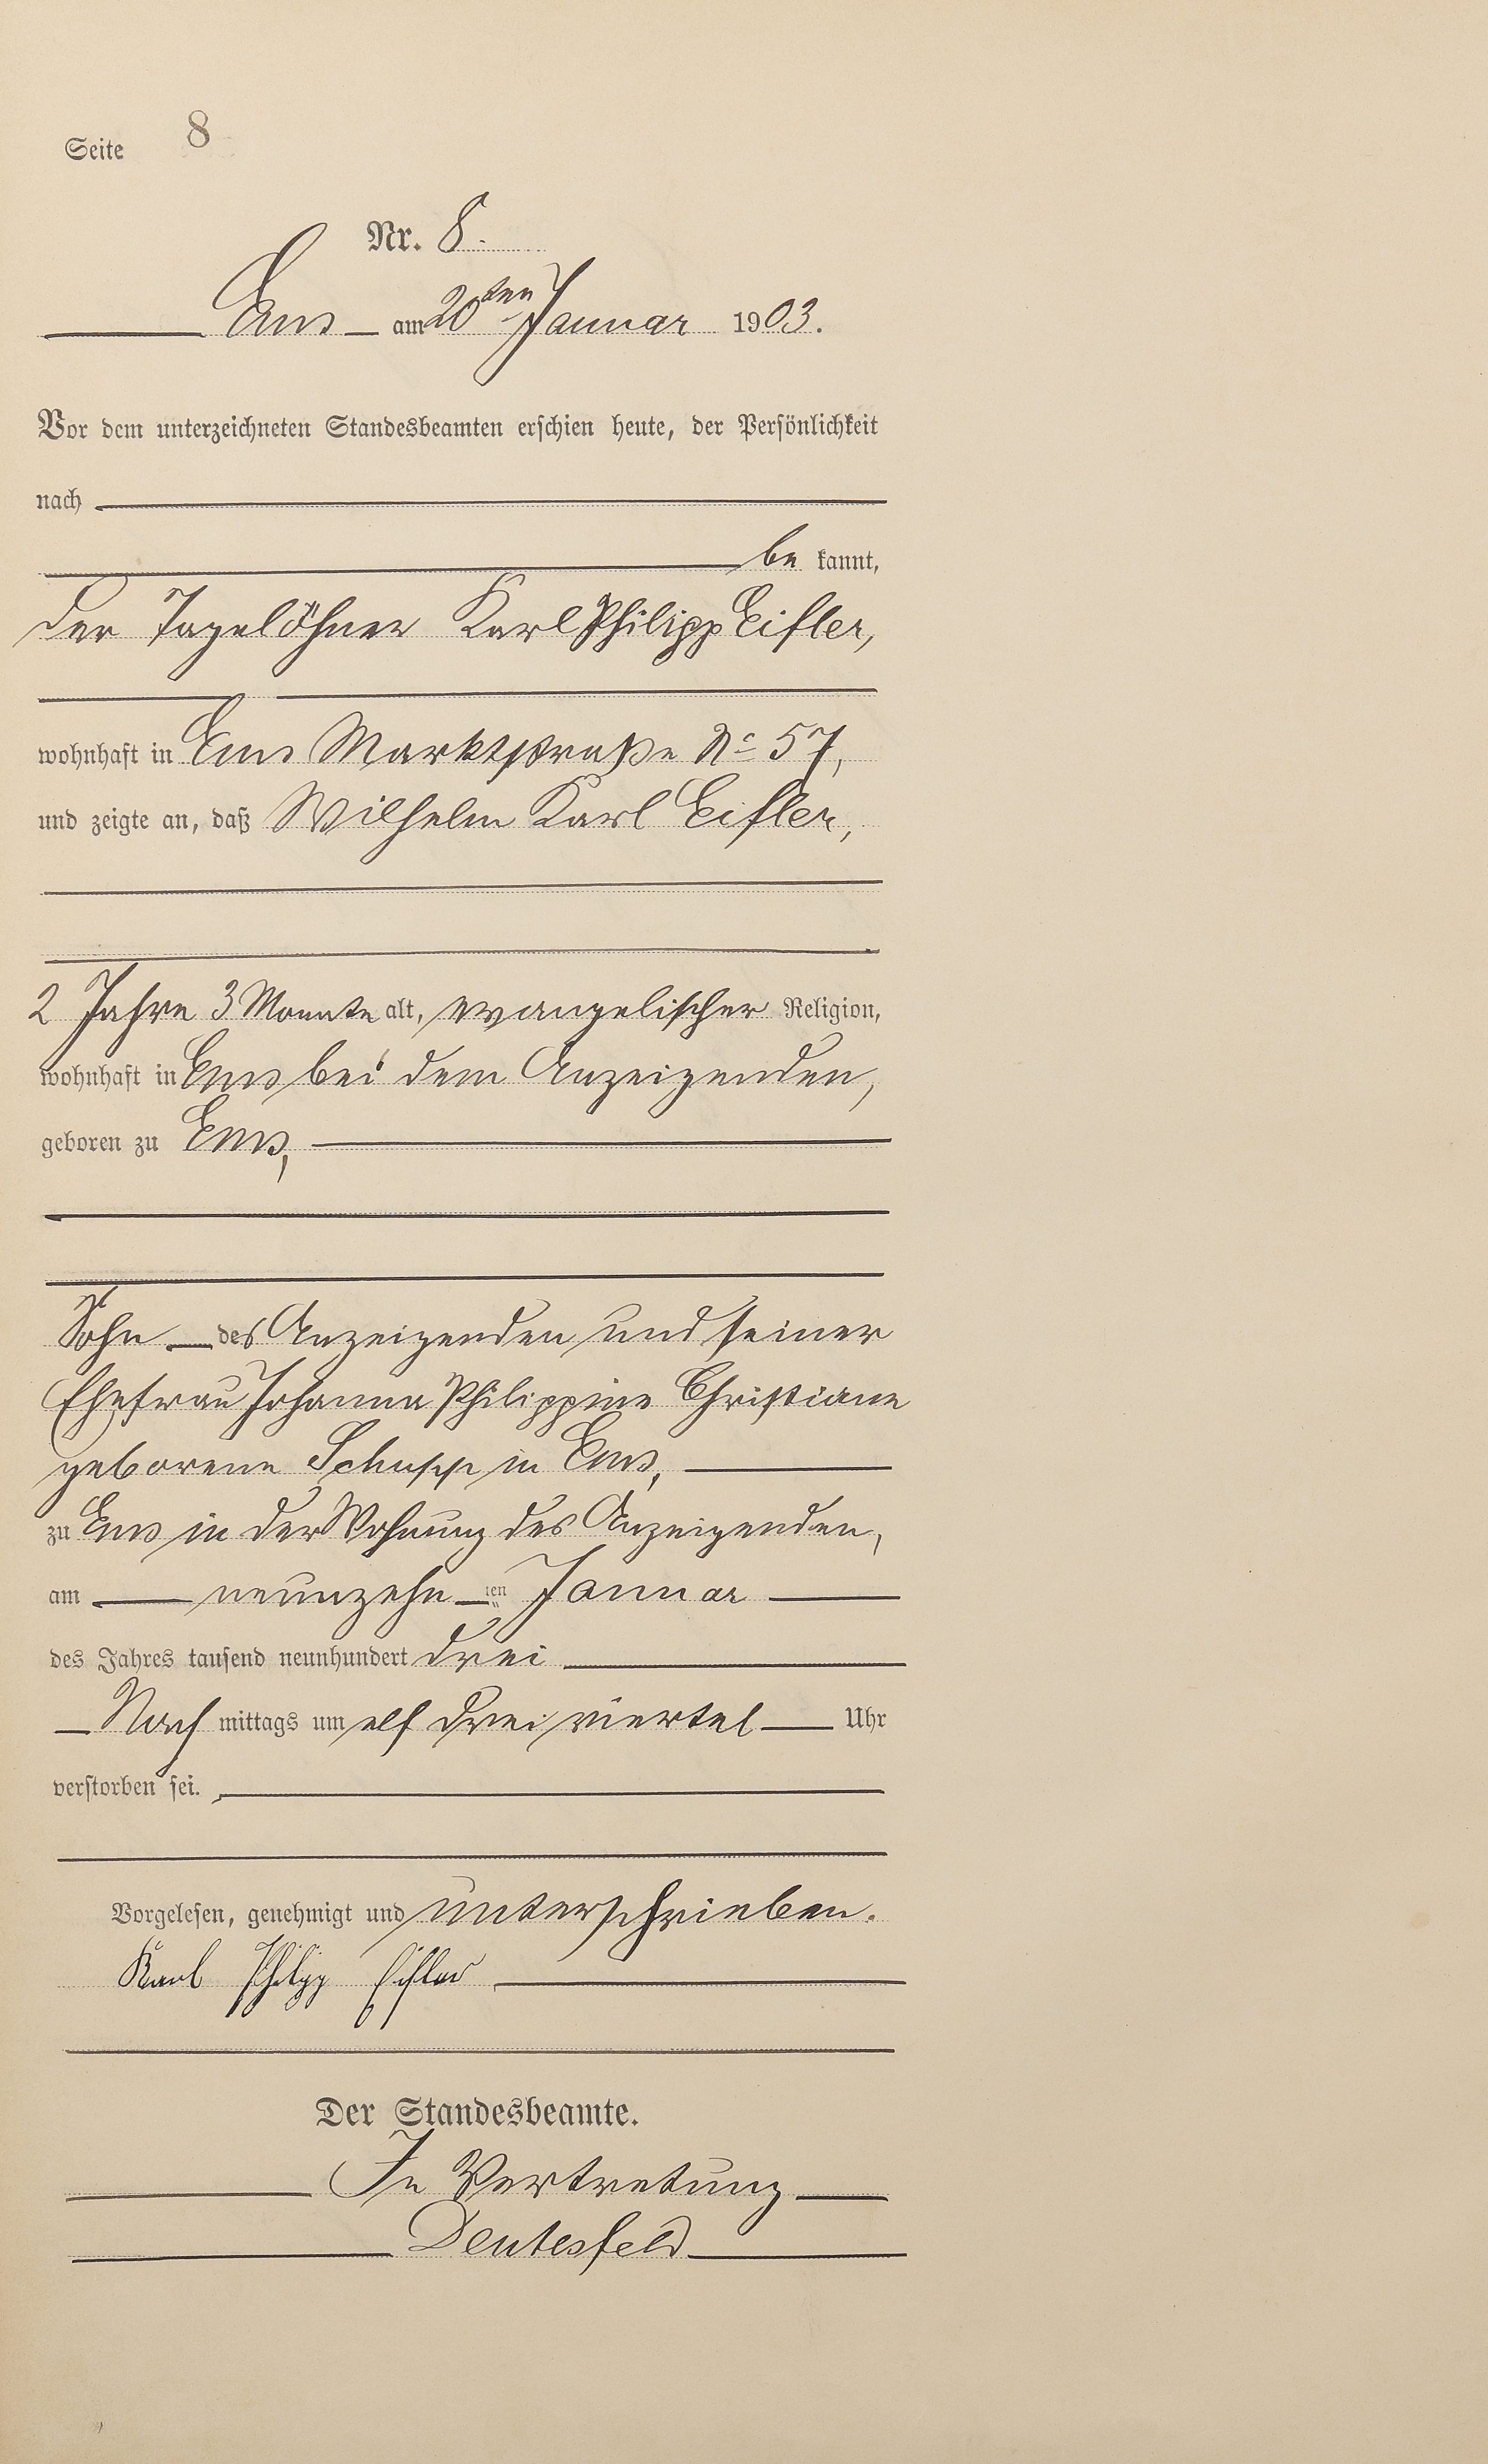 Seite 8
Nr. 8.
Ems am 20ten Januar 1903.
Vor dem unterzeichneten Standesbeamten erschien heute, der Persönlichkeit
nach
be kannt,
der Tagelöhner Karl Philipp Eifler,
wohnhaft in Ems Marktstraße No 57,
und zeigte an, daß Wilhelm Karl Eifler,
2 Jahre 3 Monate alt, evangelischer Religion,
wohnhaft in Ems bei dem Anzeigenden,
geboren zu Ems,
Sohn des Anzeigenden und seiner
Ehefrau Johanna Philippine Christiane
geborene Schupp in Ems,
zu Ems in der Wohnung des Anzeigenden,
am neunzehn ten Januar
des Jahres tausend neunhundert drei
Nach mittags um elf drei viertel Uhr
verstorben sei.
Vorgelesen, genehmigt und unterschrieben.
Karl Philipp Eifler
Der Standesbeamte.
In Vertretung
Deutesfeld